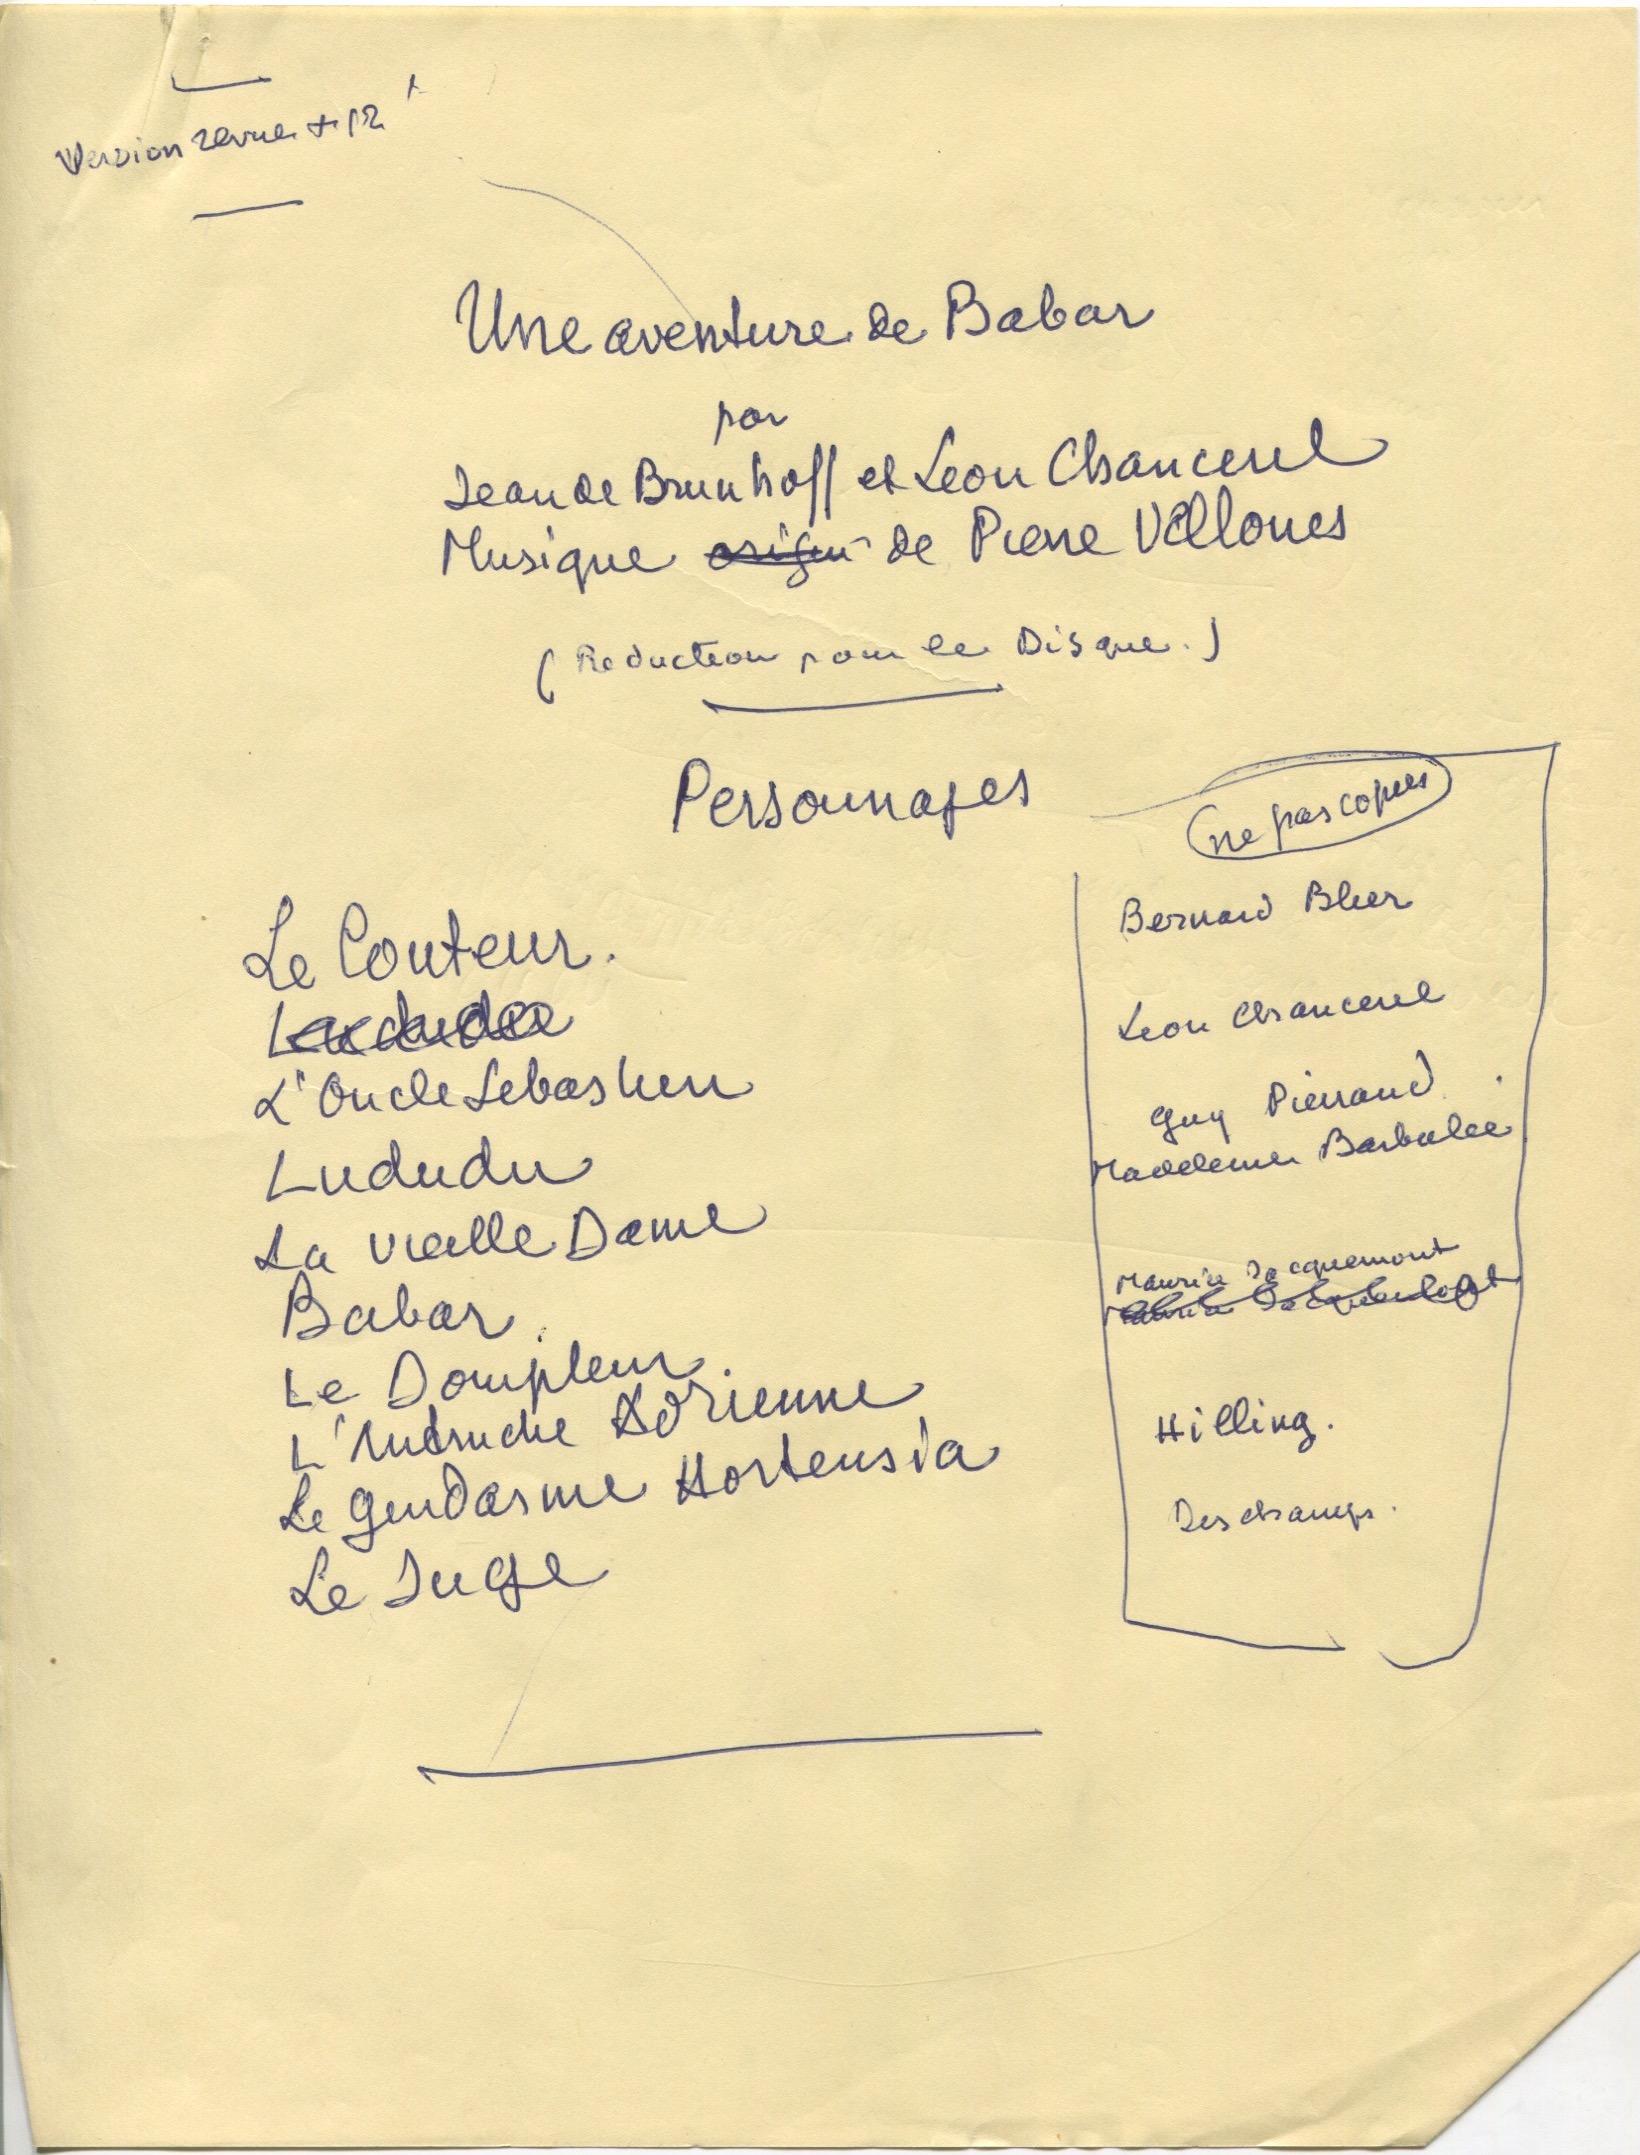 Version revue + 12
Une aventure de Babar
par
Jean de Brunhoff et Leon Chancerel
Musique origin de Pierre Vellones
(Reduction pour le Disque.)
Personnages
ne pas copier
Le Conteur.
Bernard Blier
Lududu
Leon Chancerel
L'Oncle Sebastien
Guy Pierraud
Lududu
Madeleine Barbulée
La vieille Dame
Maurice Jacquemont
Babar
Maurice Jacquemont
Le Dompteur.
L'Autruche Adrienne
Hilling.
Le gendarme Hortensia
Deschamps.
Le Juge